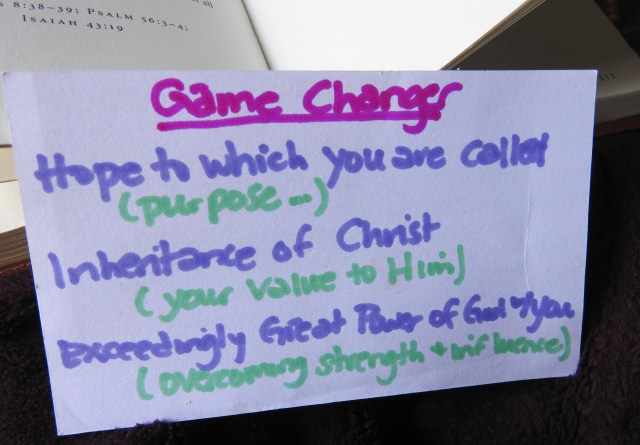 8:38–39; Psalm 56:3–4;
Isaiah 43:19
Game Changer
Hope to which you are called
(purpose...)
Inheritance of Christ
(your value to Him)
Exceedingly Great Power of God 4 you
(overcoming strength + influence)